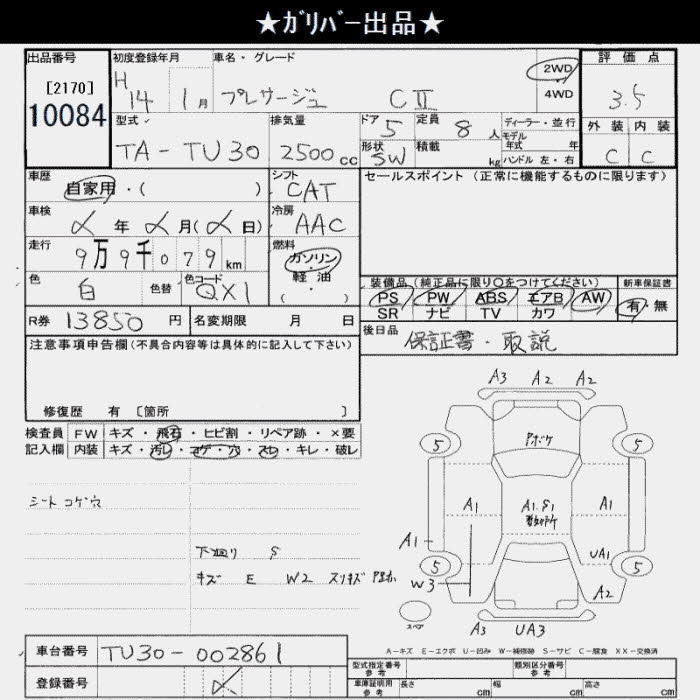 ★ガリバー出品★
出品番号 初度登録年月 車名・グレード 評価点
[2170] H14 1月 プレサージュ CⅡ 2WD 4WD 3.5
10084
型式 排気量 ドア 定員 ディーラー・並行 外装 内装
TA-TU30 2500cc 5 8人 モデル年式 年 C C
形状 積載
SW kg ハンドル 左・右
車歴 シフト セールスポイント(正常に機能するものに限ります)
自家用・( ) CAT
車検 冷房
〆年〆月(〆日) AAC
走行 燃料
9万9千079km ガソリン
軽油
( )
色 色替 色コード 装備品(純正品に限り○をつけてください) 新車保証書
白 QX1 PS PW ABS エアB AW 有・無
SR ナビ TV カワ
R券 13850円 名変期限 月 日 後日品
保証書・取説
注意事項申告欄(不具合内容等は具体的に記入して下さい)
修復歴 有 [箇所 ]
検査員 FW キズ・飛石・ヒビ割・リペア跡・×要
記入欄 内装 キズ・汚レ・コゲ・穴・スレ・キレ・破レ
シートコゲ穴
下廻り S
キズ E W2 スリキズ
A3 A2 A2
5 Pボケ 5
A1 A1.S1 A1
A1
UA1
5 W3 5
A2
スペア
A3 UA3
A-キズ E-エクボ U-凹み W-補修跡 S-サビ C-腐食 XX-交換済
車台番号 TU30-002861 型式指定番号 参考 類別区分番号 参考
登録番号 〆 車庫証明用 参考 長さ cm 幅 cm 高さ cm